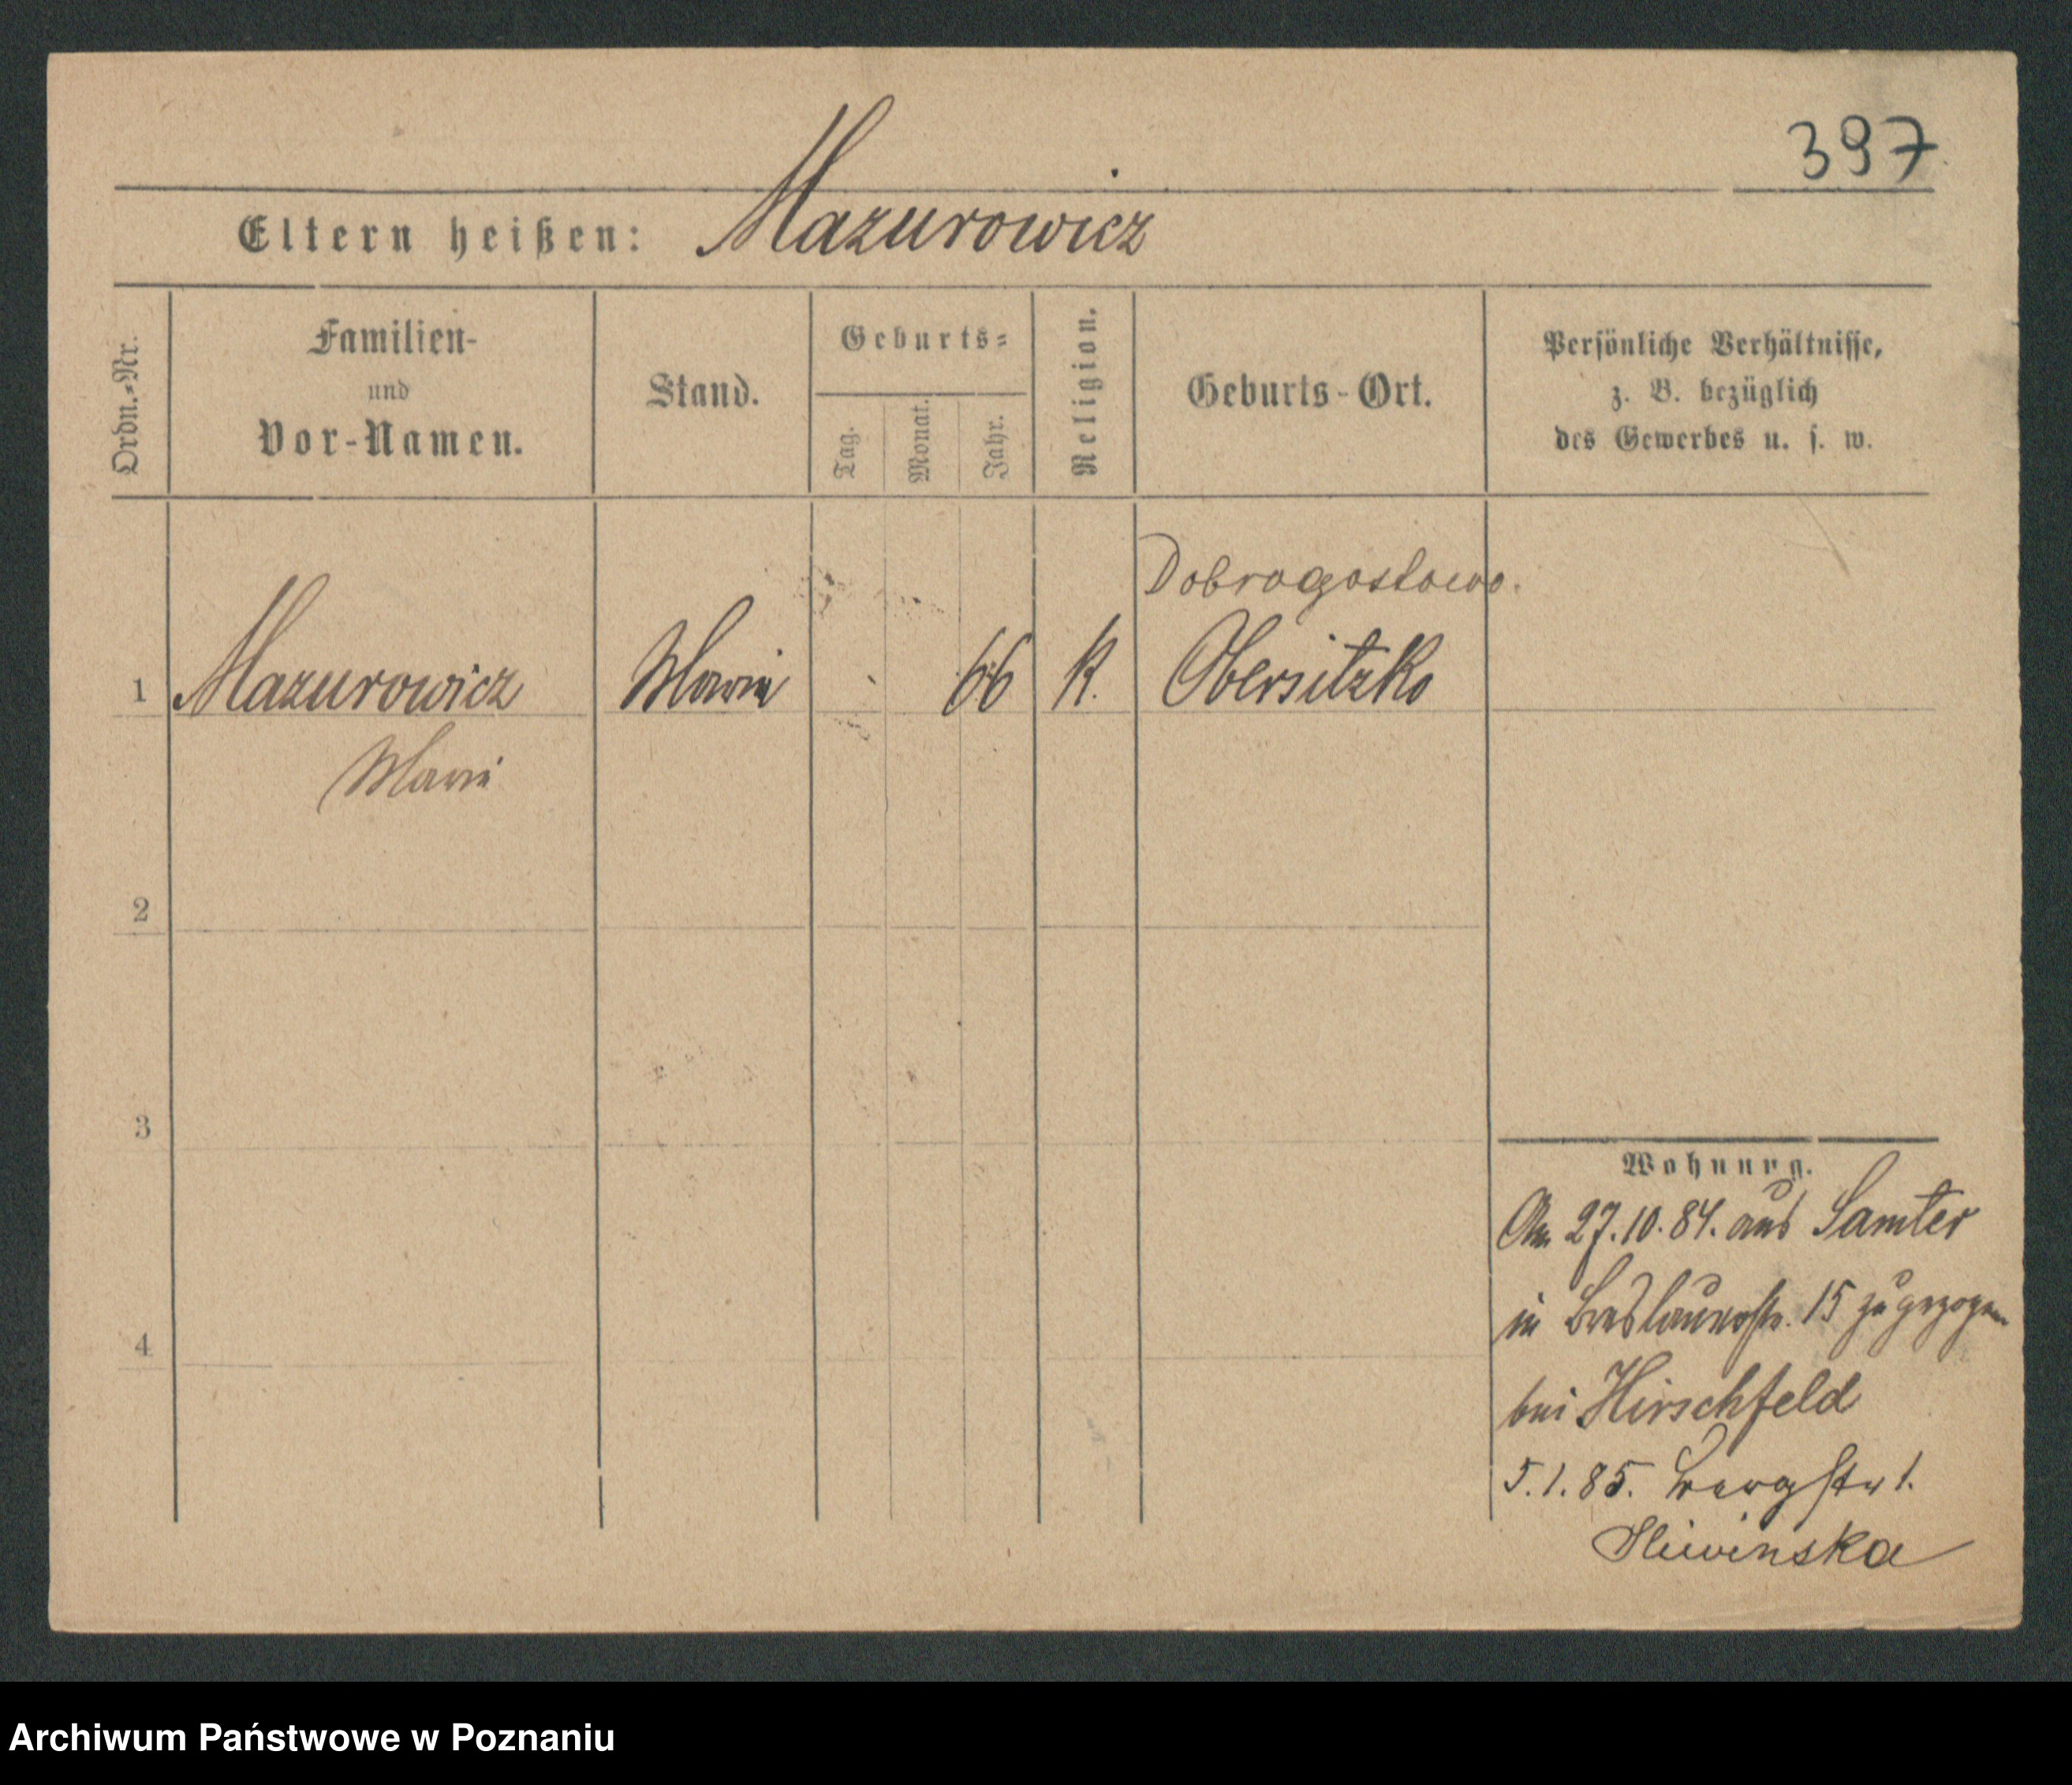 397
Eltern heißen: Mazurowicz
Ordn.-Nr.
Familien-
und
Vor-Namen.
Stand.
Geburts-
Tag.
Monat.
Jahr.
Religion.
Geburts-Ort.
Persönliche Verhältnisse,
z. B. bezüglich
des Gewerbes u. s. w.
Dobrogostowo.
1 Mazurowicz Marie 66 K. Obersitzko
Marie
2
3
4
Wohnung.
Am 27.10.84. aus Samter
in Breslauerstr. 15 zugezogen
bei Hirschfeld
5.1.85. Bergstr 1.
Sliwinska
Archiwum Państwowe w Poznaniu